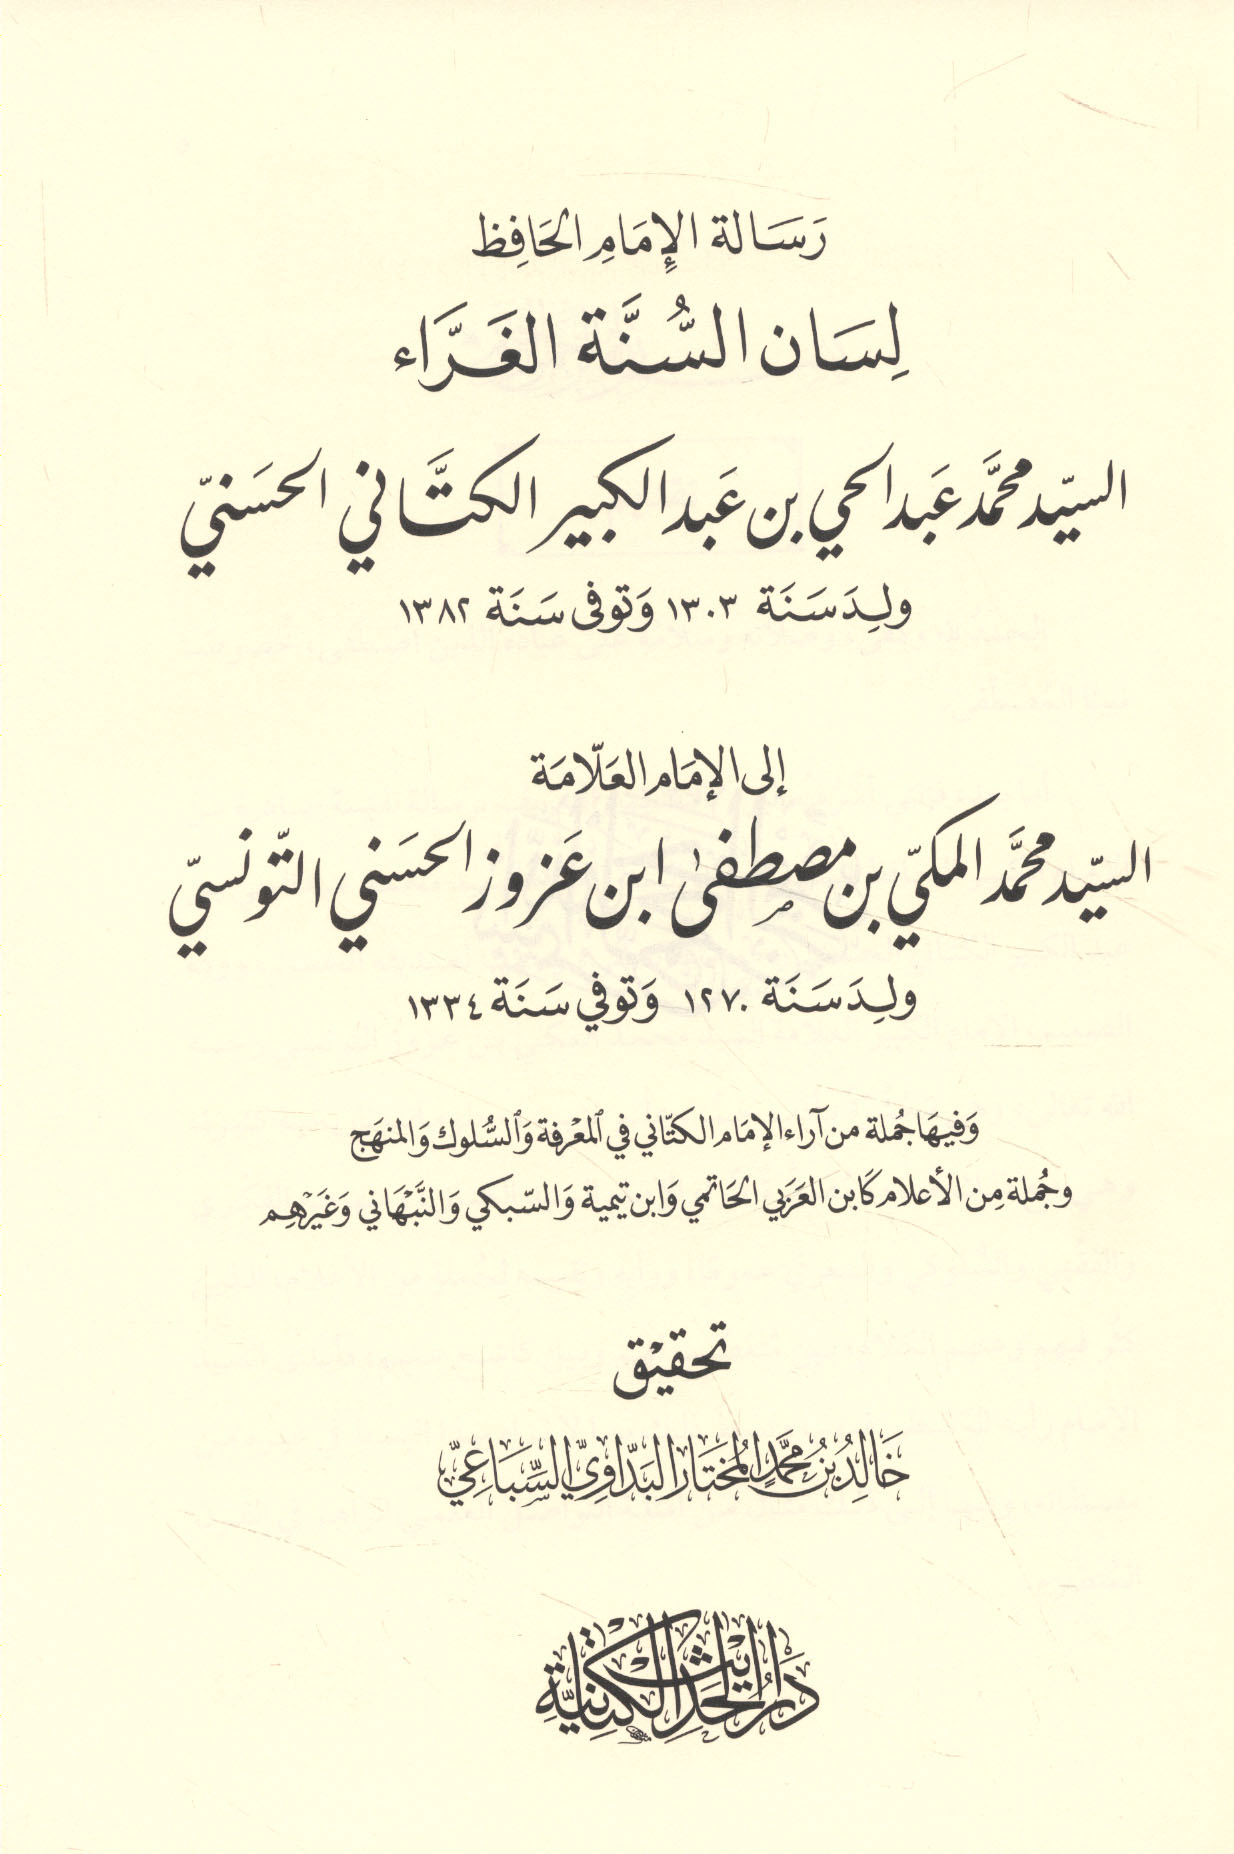 رَسَالة الإِمَامِ الحَافِظ
لِسَان السُّنَّة الغَرَّاء
السيّد محمَّد عَبد الحي بن عَبد الكبير الكتَّاني الحسَنيّ
ولِدَ سَنَة ١٣٠٣ وَتوفى سَنَة ١٣٨٢
إلى الإمَام العَلّامَة
السيّد محمَّد المكيّ بن مصطفىٰ ابن عَزوز الحسَني التّونسيّ
ولِدَ سَنَة ١٢٧٠ وَتوفي سَنَة ١٣٣٤
وَفيهَا جُملة من آراء الإمَام الكتّاني في المعْرفة وَالسُّلوك وَالمنهَج
وجُملة مِن الأعلام كَابن العَرَبي الحَاتمي وَابن تيمية وَالسّبكي وَالنَّبْهَاني وَغَيْرهِم
تحقيْق
خَالِدُ بْنُ محمَّدٍ المُختَار البَدّاوِيّ السِّبَاعِيّ
دَارُ الحَدِيث الكَتّانِيَّة